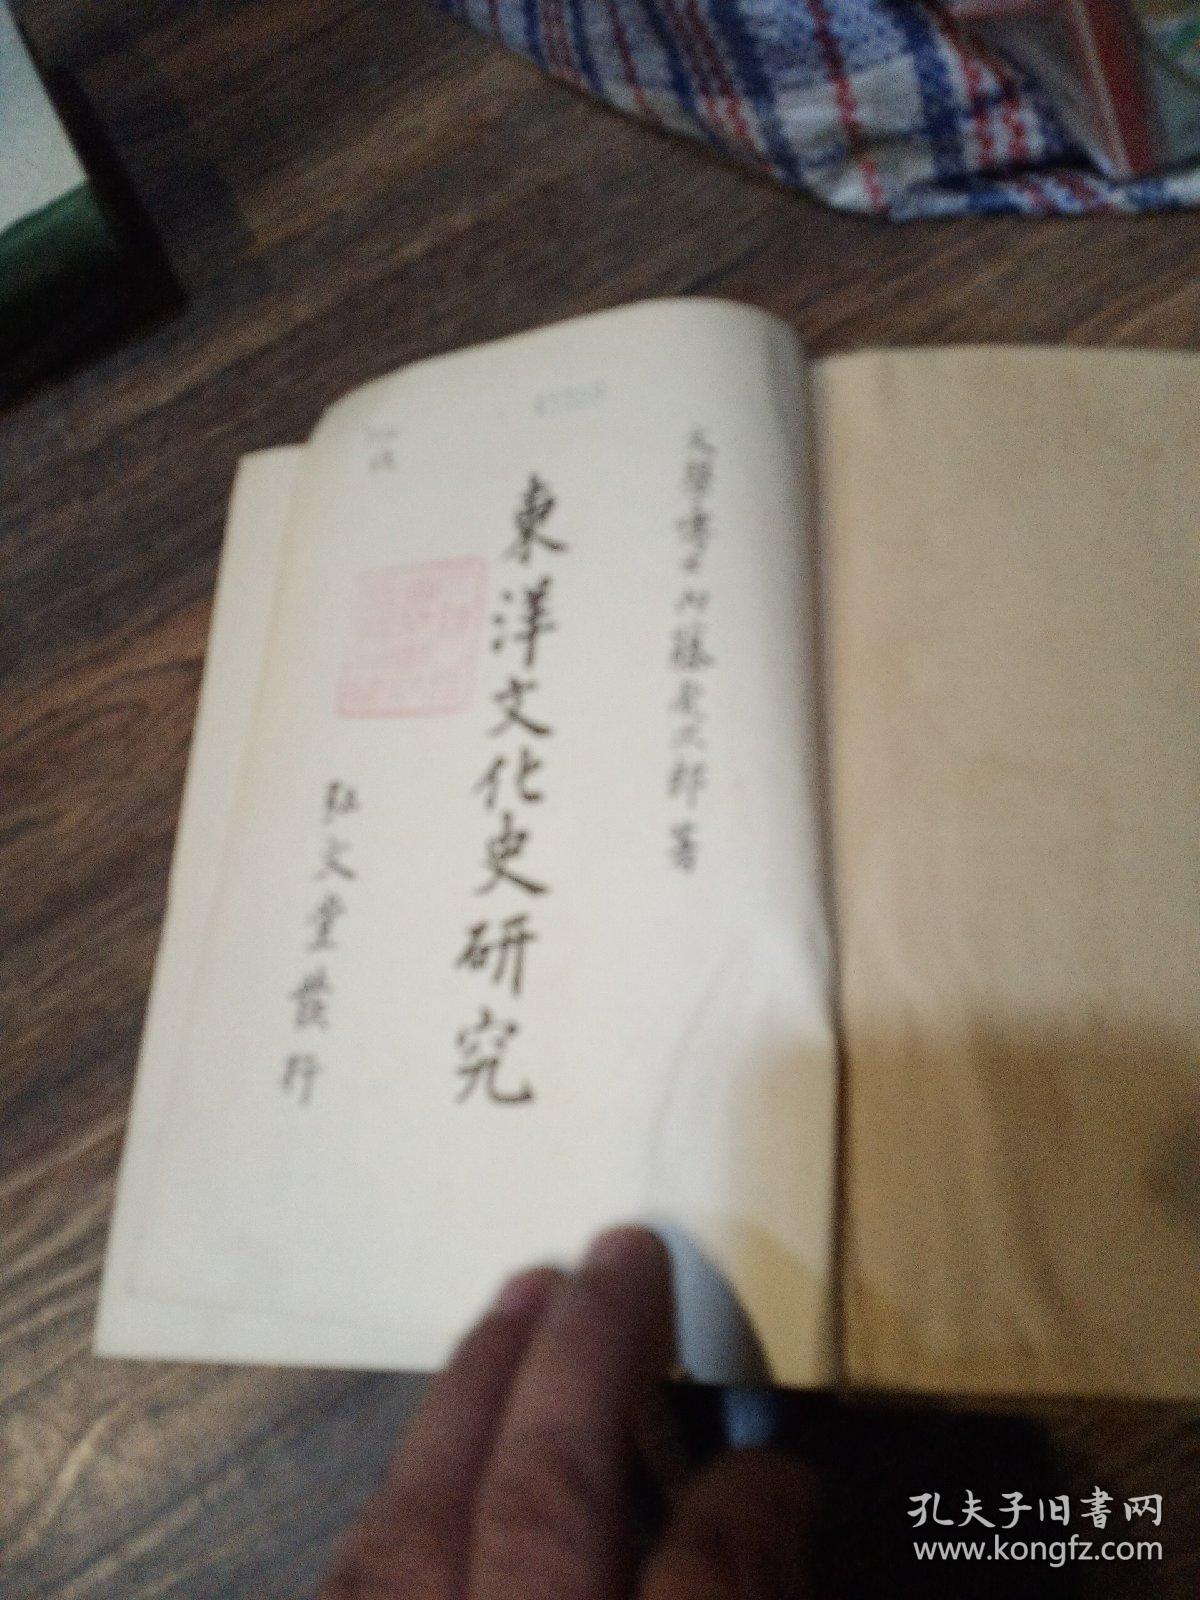 文學博士内藤虎次郎著
東洋文化史研究
弘文堂發行
孔夫子旧書网
www.kongfz.com